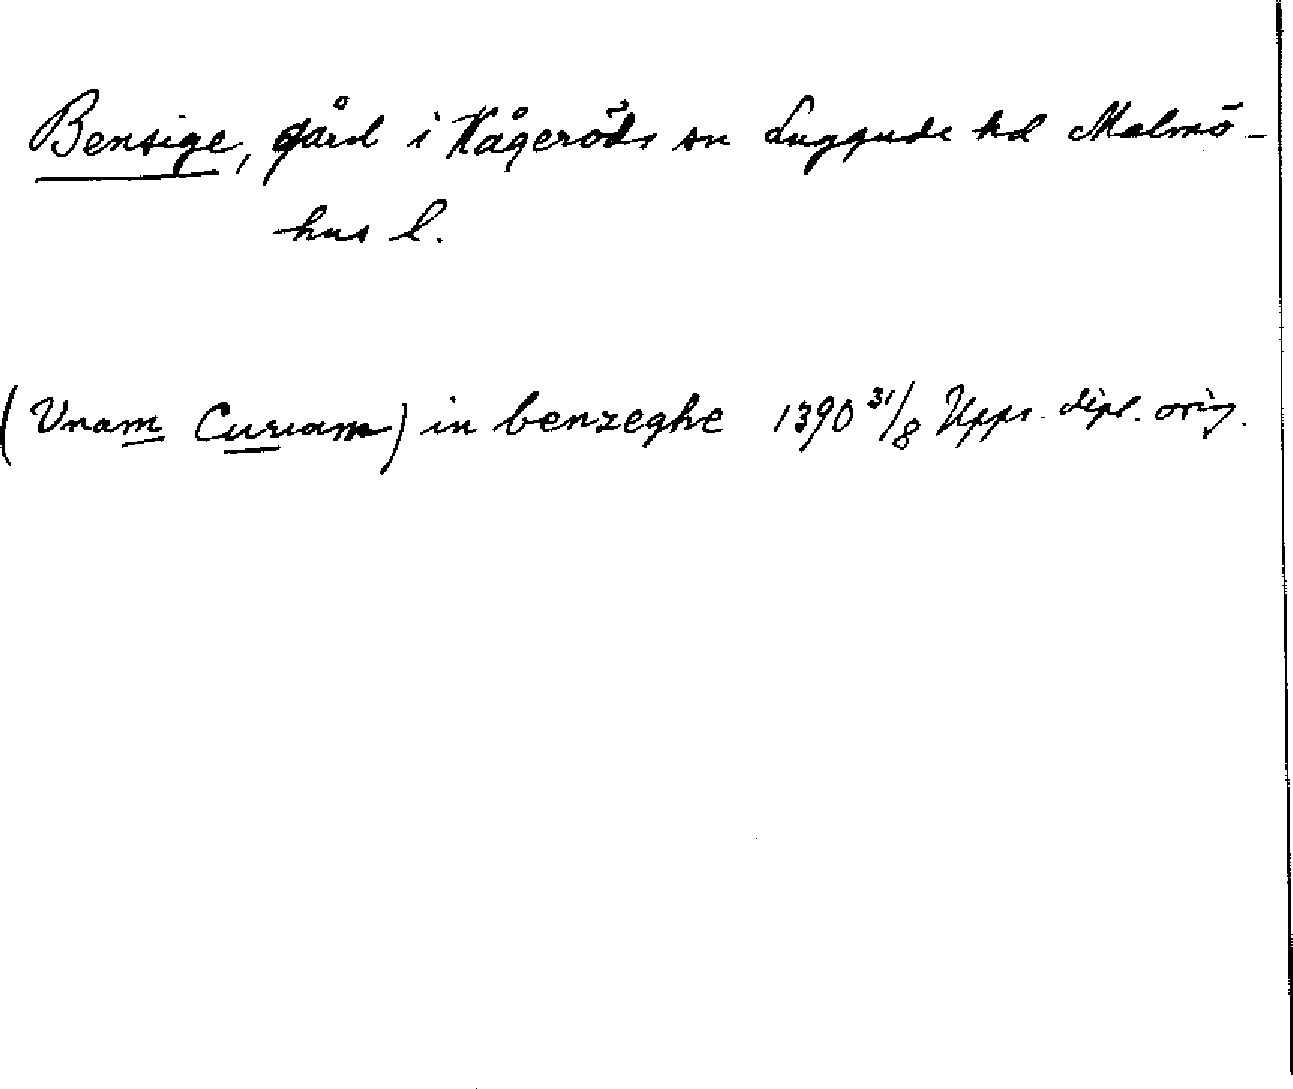 Bensige, gård i Kågeröds sn Luggude hd Malmö-
hus l.
(Unam Curiam) in benzeghe 1390 31/8 Upps. dipl. orig.